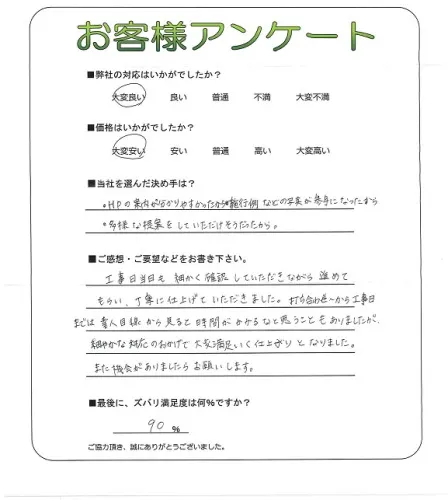 お客様アンケート
■弊社の対応はいかがでしたか?
大変良い 良い 普通 不満 大変不満
■価格はいかがでしたか?
大変安い 安い 普通 高い 大変高い
■当社を選んだ決め手は?
・HPの案内が分かりやすかったから 施行例などの写真が参考になったから
・多様な提案をしていただけそうだったから。
■ご感想・ご要望などをお書き下さい。
工事日当日も細かく確認していただきながら進めて
もらい、丁寧に仕上げていただきました。打ち合わせから工事日
までは素人目線から見ると時間がかかるなと思うこともありましたが、
細やかな対応のおかげで大変満足いく仕上がりとなりました。
また機会がありましたらお願いします。
■最後に、ズバリ満足度は何%ですか?
90 %
ご協力頂き、誠にありがとうございました。